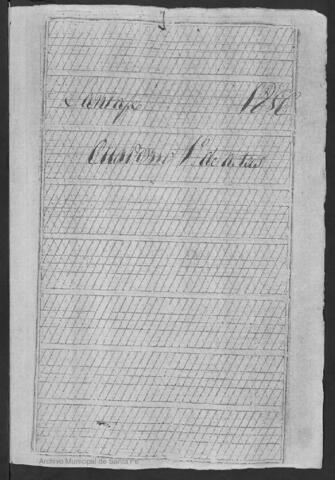 Santafé 1850
Cuaderno 1º de actas
Archivo Municipal de Santa Fe